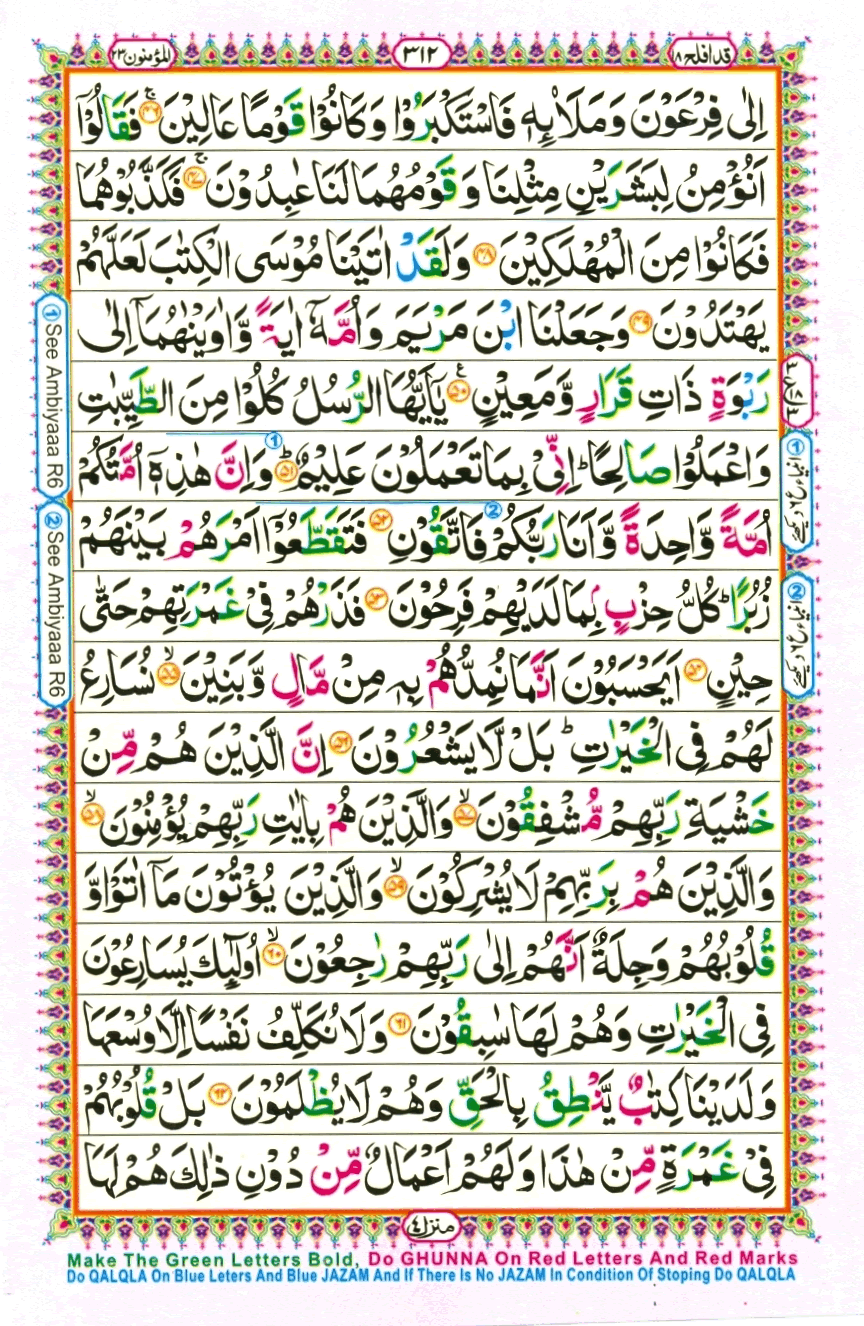 قد افلح ١٨
٣١٢
المؤمنون ٢٣
اِلٰى فِرْعَوْنَ وَمَلَا۟ىِٕهٖ فَاسْتَكْبَرُوْا وَكَانُوْا قَوْمًا عَالِيْنَ ۚ ﴿٤٦﴾ فَقَالُوْٓا
اَنُؤْمِنُ لِبَشَرَيْنِ مِثْلِنَا وَقَوْمُهُمَا لَنَا عٰبِدُوْنَ ۚ ﴿٤٧﴾ فَكَذَّبُوْهُمَا
فَكَانُوْا مِنَ الْمُهْلَكِيْنَ ﴿٤٨﴾ وَلَقَدْ اٰتَيْنَا مُوْسَى الْكِتٰبَ لَعَلَّهُمْ
يَهْتَدُوْنَ ﴿٤٩﴾ وَجَعَلْنَا ابْنَ مَرْيَمَ وَاُمَّهٗٓ اٰيَةً وَّاٰوَيْنٰهُمَآ اِلٰى
رَبْوَةٍ ذَاتِ قَرَارٍ وَّمَعِيْنٍ ۧ ﴿٥٠﴾ يٰٓاَيُّهَا الرُّسُلُ كُلُوْا مِنَ الطَّيِّبٰتِ
وَاعْمَلُوْا صَالِحًا ؕ اِنِّىْ بِمَا تَعْمَلُوْنَ عَلِيْمٌ ؕ ﴿٥١﴾ وَاِنَّ هٰذِهٖٓ اُمَّتُكُمْ
اُمَّةً وَّاحِدَةً وَّاَنَا رَبُّكُمْ فَاتَّقُوْنِ ﴿٥٢﴾ فَتَقَطَّعُوْٓا اَمْرَهُمْ بَيْنَهُمْ
زُبُرًا ؕ كُلُّ حِزْبٍۭ بِمَا لَدَيْهِمْ فَرِحُوْنَ ﴿٥٣﴾ فَذَرْهُمْ فِىْ غَمْرَتِهِمْ حَتّٰى
حِيْنٍ ﴿٥٤﴾ اَيَحْسَبُوْنَ اَنَّمَا نُمِدُّهُمْ بِهٖ مِنْ مَّالٍ وَّبَنِيْنَ ۙ ﴿٥٥﴾ نُسَارِعُ
لَهُمْ فِى الْخَيْرٰتِ ؕ بَلْ لَّا يَشْعُرُوْنَ ﴿٥٦﴾ اِنَّ الَّذِيْنَ هُمْ مِّنْ
خَشْيَةِ رَبِّهِمْ مُّشْفِقُوْنَ ۙ ﴿٥٧﴾ وَالَّذِيْنَ هُمْ بِاٰيٰتِ رَبِّهِمْ يُؤْمِنُوْنَ ۙ ﴿٥٨﴾
وَالَّذِيْنَ هُمْ بِرَبِّهِمْ لَا يُشْرِكُوْنَ ۙ ﴿٥٩﴾ وَالَّذِيْنَ يُؤْتُوْنَ مَآ اٰتَوْا وَّ
قُلُوْبُهُمْ وَجِلَةٌ اَنَّهُمْ اِلٰى رَبِّهِمْ رٰجِعُوْنَ ۙ ﴿٦٠﴾ اُولٰٓىِٕكَ يُسَارِعُوْنَ
فِى الْخَيْرٰتِ وَهُمْ لَهَا سٰبِقُوْنَ ﴿٦١﴾ وَلَا نُكَلِّفُ نَفْسًا اِلَّا وُسْعَهَا
وَلَدَيْنَا كِتٰبٌ يَّنْطِقُ بِالْحَقِّ وَهُمْ لَا يُظْلَمُوْنَ ﴿٦٢﴾ بَلْ قُلُوْبُهُمْ
فِىْ غَمْرَةٍ مِّنْ هٰذَا وَلَهُمْ اَعْمَالٌ مِّنْ دُوْنِ ذٰلِكَ هُمْ لَهَا
① See Ambiyaaa R6
② See Ambiyaaa R6
منزل ٤
Make The Green Letters Bold, Do GHUNNA On Red Letters And Red Marks
Do QALQLA On Blue Leters And Blue JAZAM And If There Is No JAZAM In Condition Of Stoping Do QALQLA